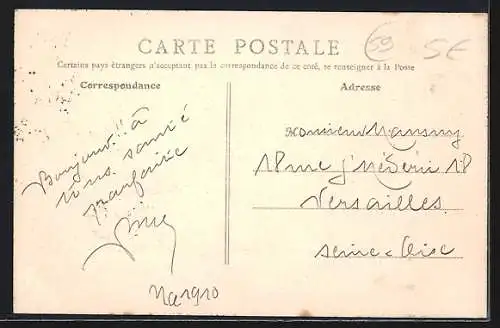 CARTE POSTALE
59
SE
Certains pays étrangers n'acceptant pas la correspondance de ce côté, se renseigner à la Poste
Correspondance
Adresse
Bonjour!! à
tous santé
parfaite
Monsieur
18 rue 18
Versailles
Seine & Oise
1910